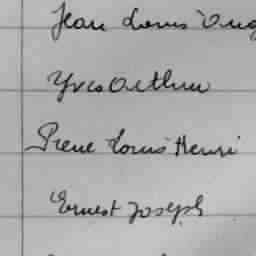 Jean Louis Aug
Yves Arthur
Pierre Louis Henri
Ernest Joseph